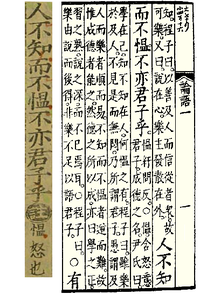 論語 一
知程子曰以善及人而信從者衆故
可樂又曰說在心樂主發散在外
人不知
而不慍不亦君子乎
慍紆問反○慍含怒
意君子成德之名尹氏曰
學在己知不知在人何慍之有程子曰雖樂
於及人不見是而無悶乃所謂君子愚謂及
人而樂者順而易不知而不慍者逆而難故
惟成德者能之然德之所以成亦曰學之正
習之熟說之深而不已焉耳○程子曰
樂由說而後得非樂不足以語君子
○有
人不知而不慍不亦君子乎
慍怒也